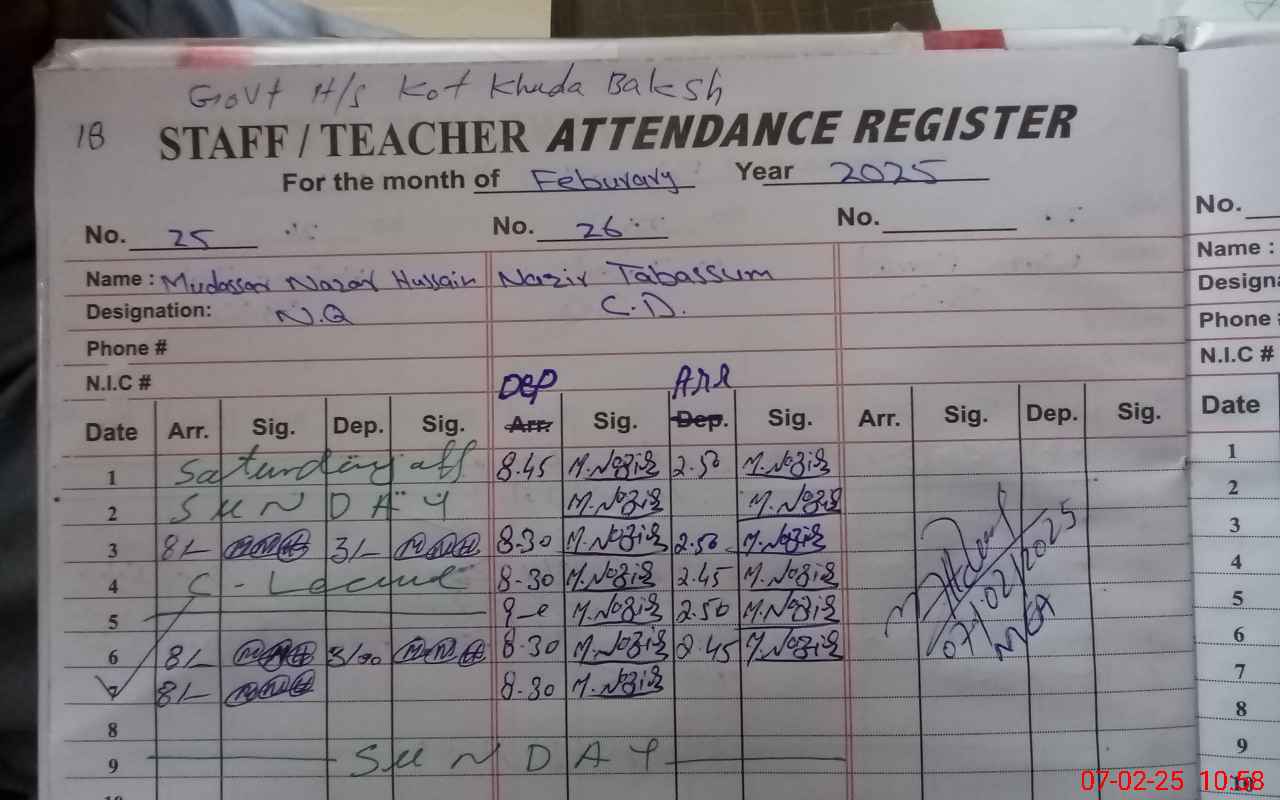 Govt H/S Kot Khuda Baksh
18 STAFF / TEACHER ATTENDANCE REGISTER
For the month of Feburary Year 2025
No. 25 No. 26 No. No.
Name : Mudassar Nazar Hussain Nazir Tabassum Name :
Designation: N.Q C.D. Design
Phone # Phone
N.I.C # N.I.C #
Dep Arr
Date Arr. Sig. Dep. Sig. Arr. Sig. Dep. Sig. Arr. Sig. Dep. Sig. Date
1 Saturday off 8.45 M.Nazir 2.50 M.Nazir 1
2 SUNDAY M.Nazir M.Nazir 2
3 8/- 3/- 8.30 M.Nazir 2.50 M.Nazir 3
4 C-Leave 8-30 M.Nazir 2.45 M.Nazir 4
5 M.Nazir 2.50 M.Nazir 5
6 8/- 3/00 8-30 M.Nazir 2.45 M.Nazir 6
7 8/- 8-30 M.Nazir 7
07/02/2025
MEA
8 8
9 SUNDAY 9
10 10
07-02-25 10:58